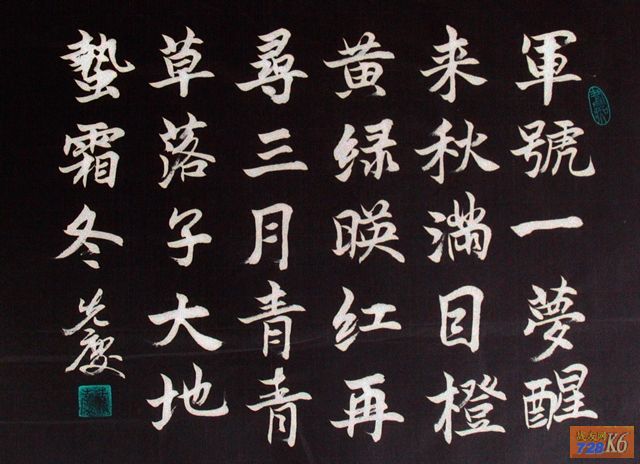 軍號一夢醒
来秋滿目橙
黄绿暎红再
尋三月青青
草落子大地
蟄霜冬
战友网
728K6